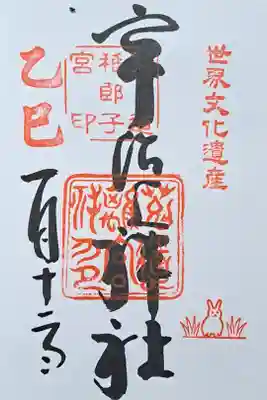 世界文化遺産
宇治上神社
稚郎子
宮印
乙巳
一月十二日